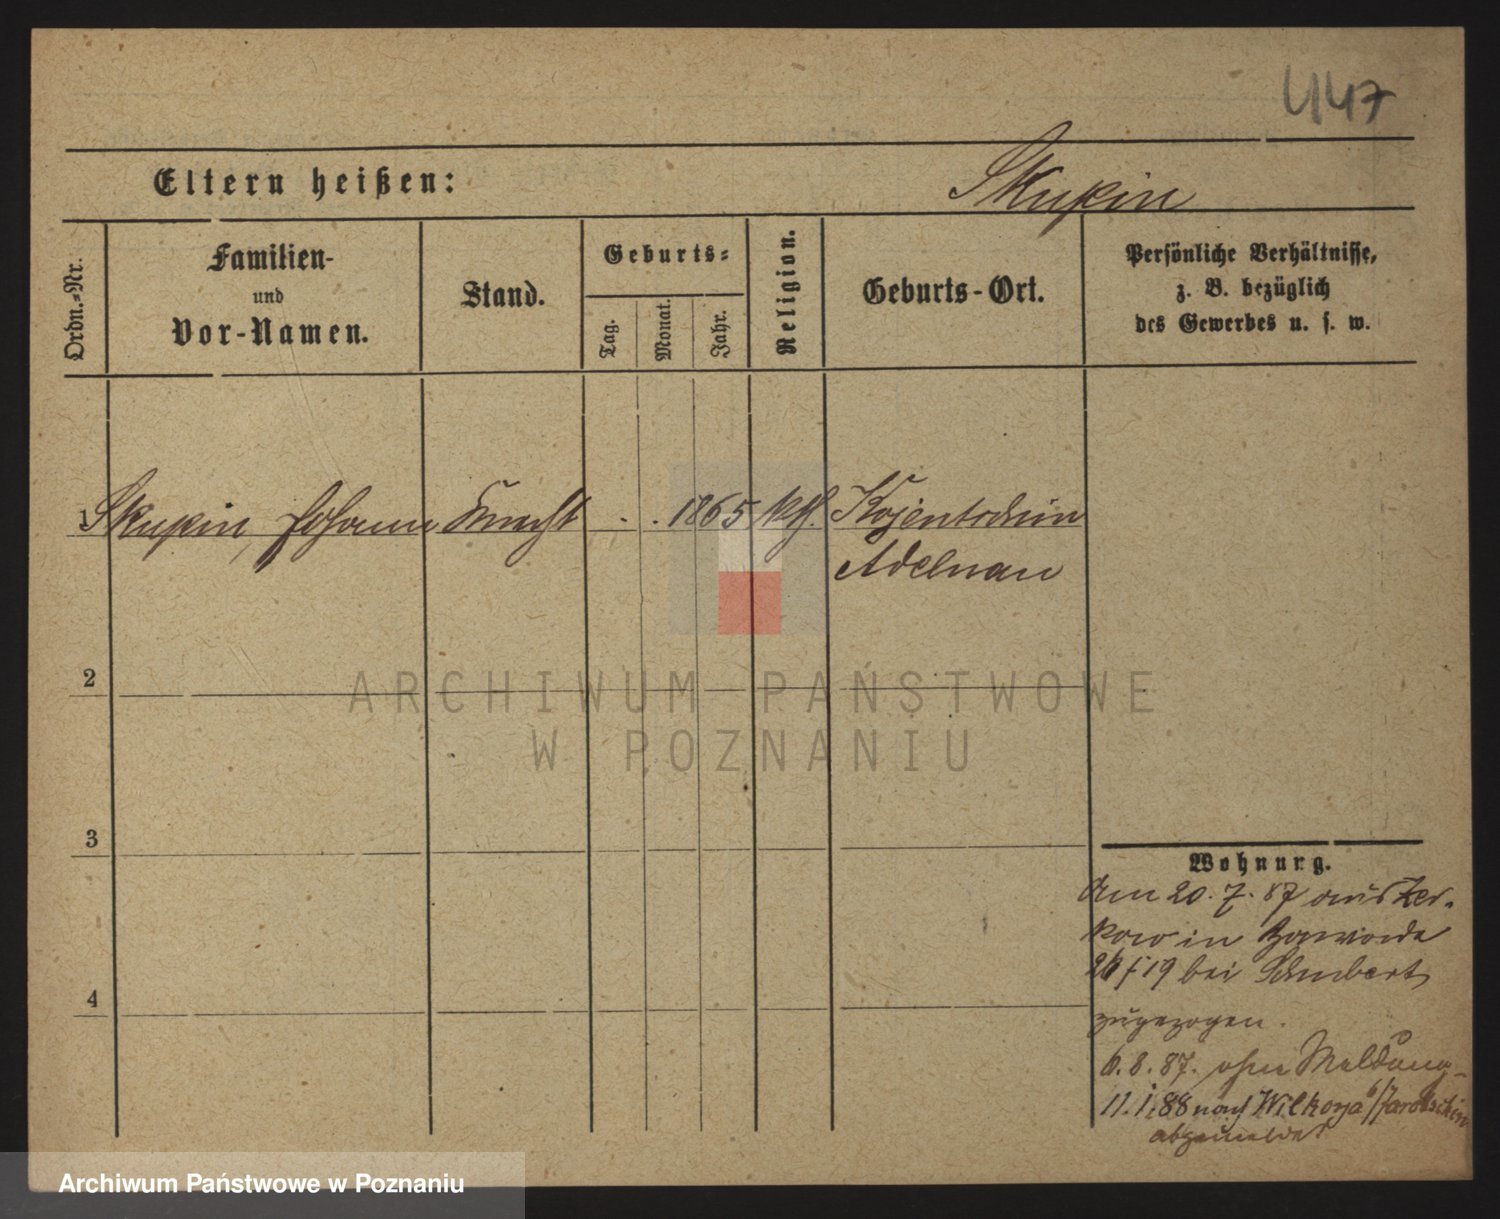 447
Eltern heißen:
Skupin
Ordn.=Nr.
Familien-
und
Vor-Namen.
Stand.
Geburts=
Tag.
Monat.
Jahr.
Religion.
Geburts-Ort.
Persönliche Verhältnisse,
z. B. bezüglich
des Gewerbes u. s. w.
1 Skupin, Johann Knecht . . 1865 kth. Kojentschin
Adelnau
2
3
4
ARCHIWUM PAŃSTWOWE
W POZNANIU
Wohnung.
Am 20.7.87 aus Zer-
kow in Zawade
19 bei Schubert
zugezogen.
6.8.87. ohne Meldung
11.1.88 nach Wilkoya b/Jarotschin
abgemeldet
Archiwum Państwowe w Poznaniu